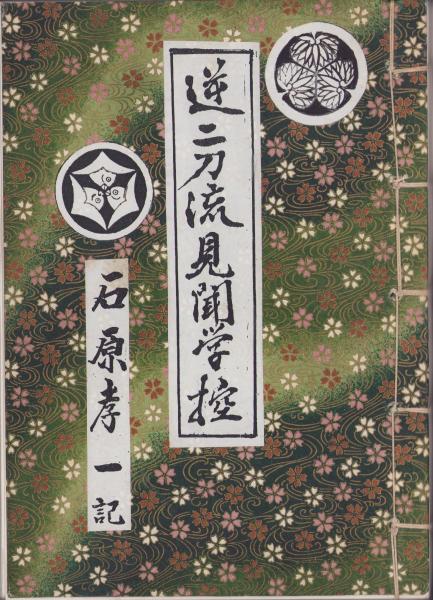 逆二刀流見聞学控
石原孝一記